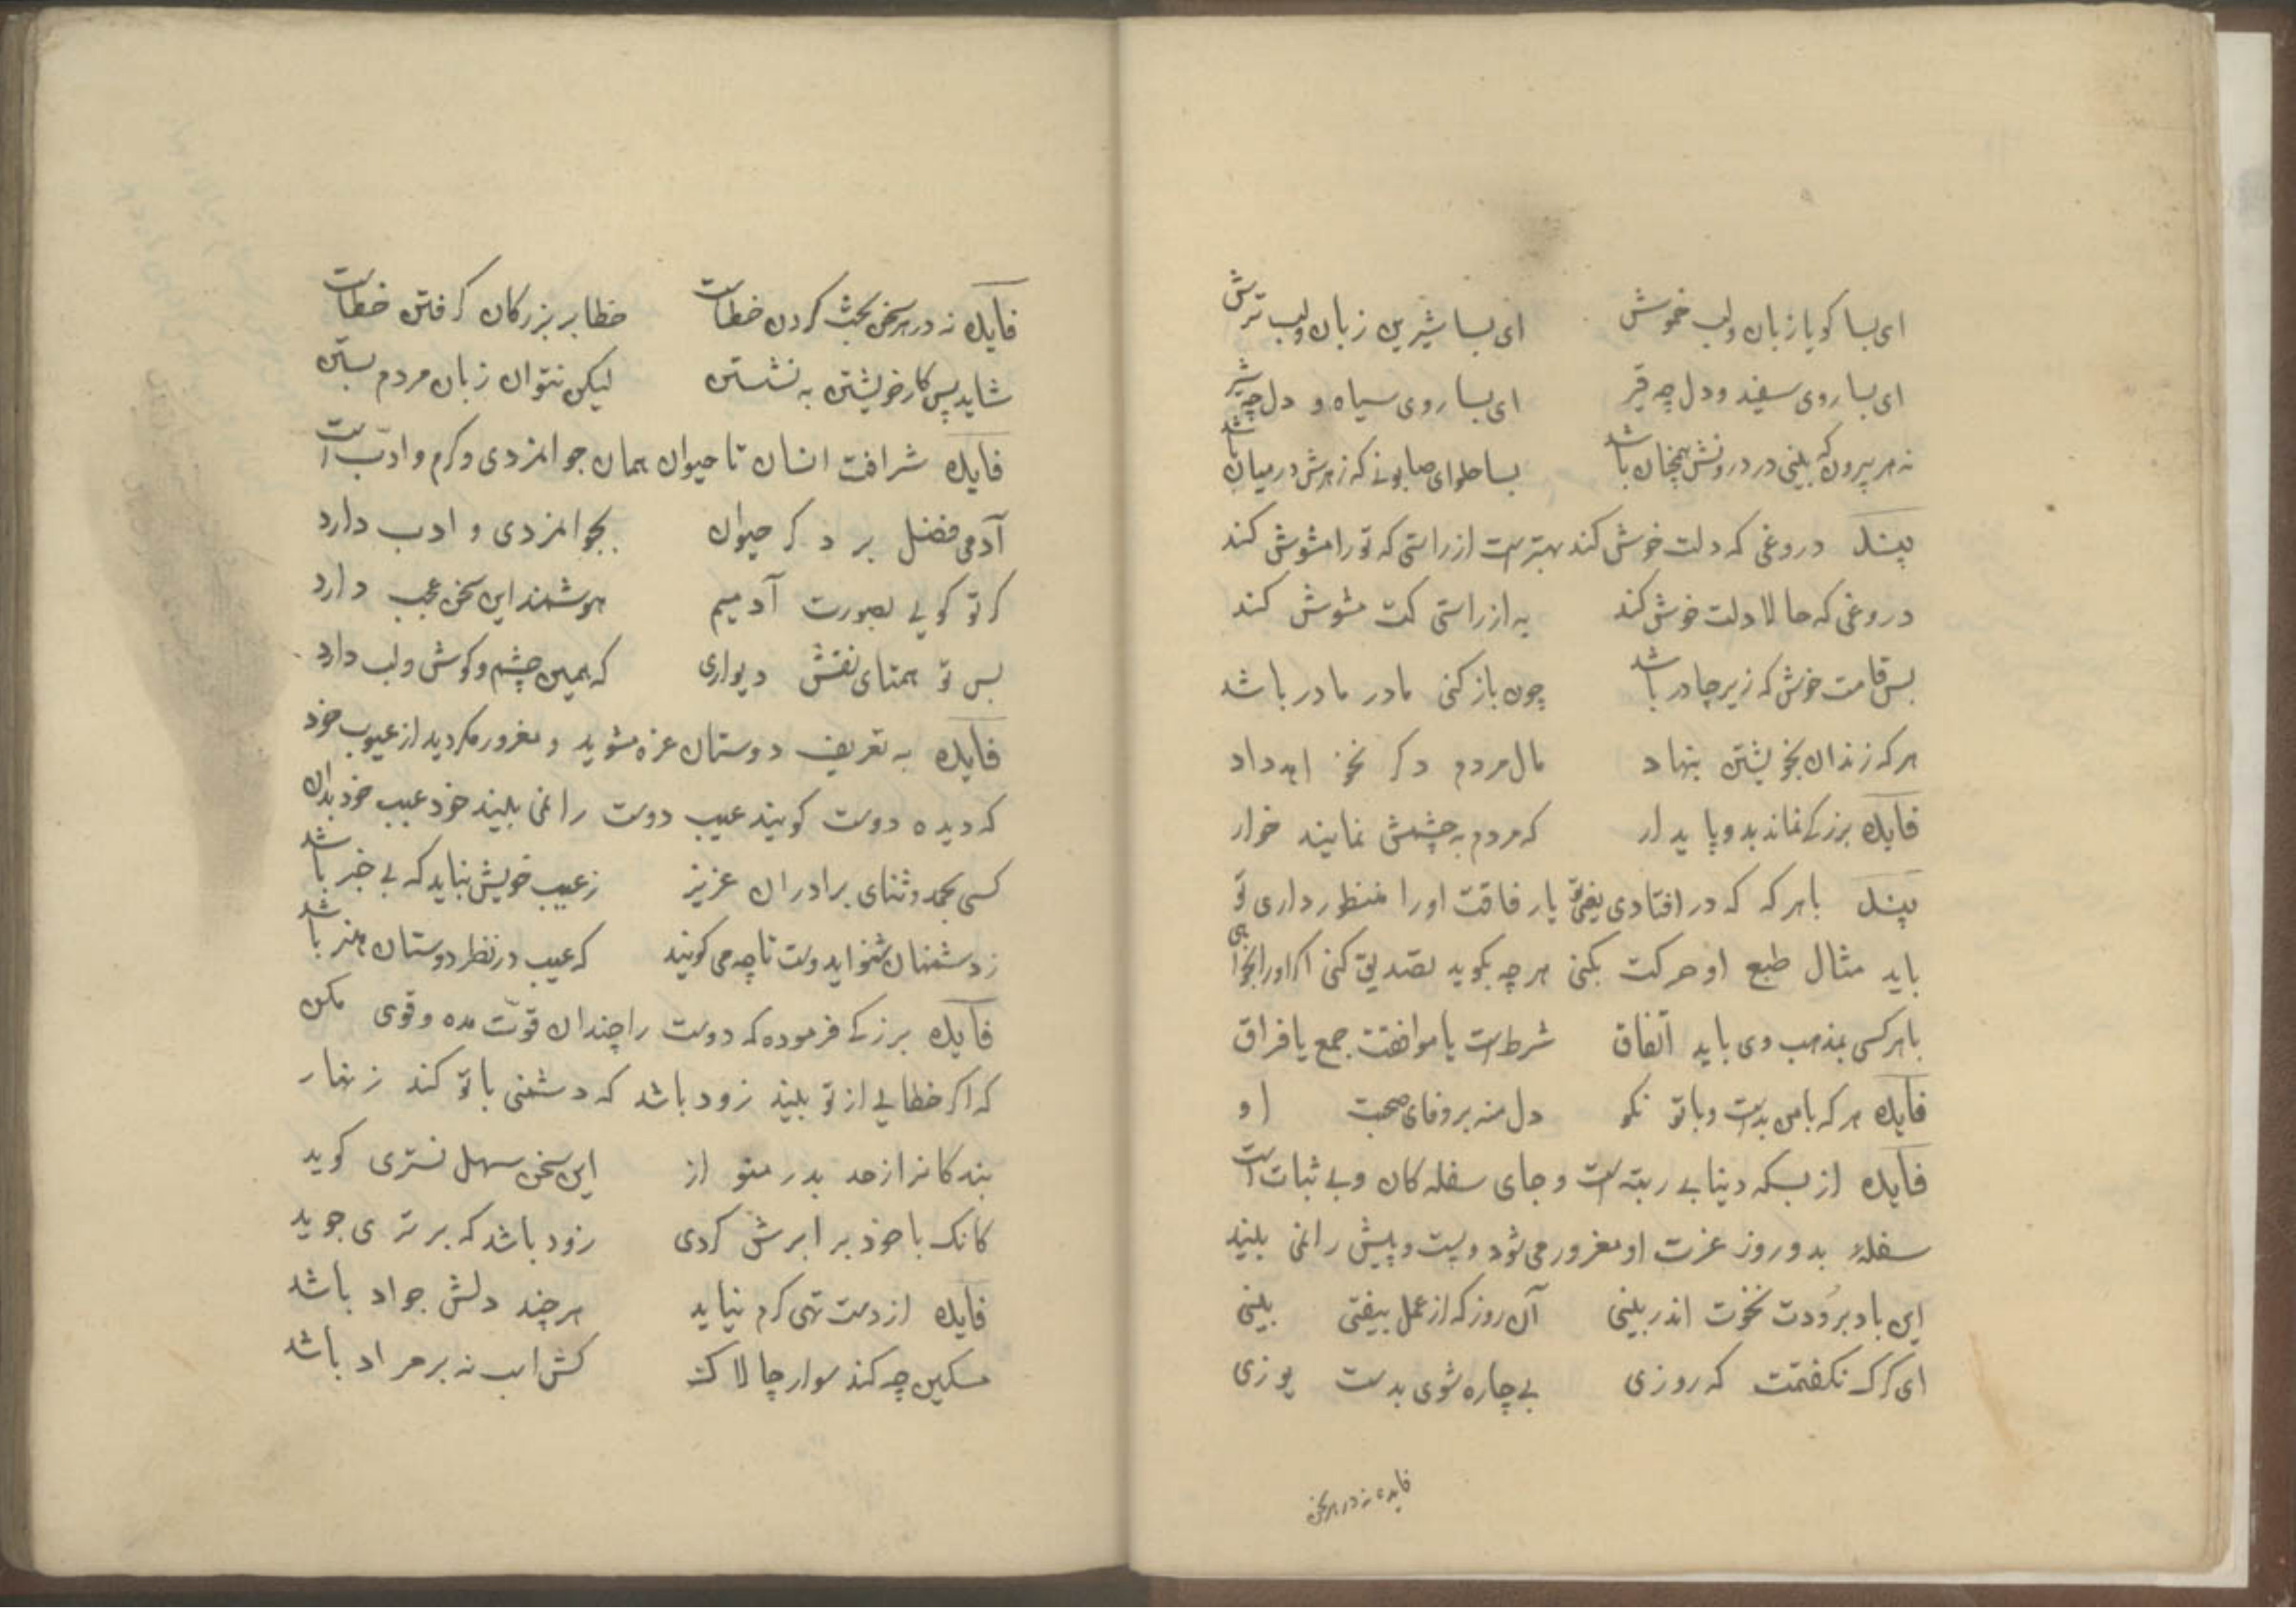 ای بسا کویا زبان و لب خموش ای بسا شیرین زبان و لب ترش
ای بسا روی سفید و دل چه قیر ای بسا روی سیاه و دل چه شیر
نه هر بیرون که بینی در درونش همچنان باشد بسا حلوای صابونی که زهرش در میان باشد
پند دروغی که دلت خوش کند بهترست از راستی که تو را مشوش کند
دروغی که حالا دلت خوش کند به از راستی کت مشوش کند
بس قامت خوش که زیر چادر باشد چون باز کنی مادر مادر باشد
هر که زندان بخویشتن بنهاد مال مردم دکر نخواهد داد
فایده بزرکی نماند بدو پایدار که مردم به چشمش نمایند خوار
پند باهر که که در افتادی یعنی یار فاقت او را منظور داری تو
باید مثال طبع او حرکت بکنی هر چه بکوید تصدیق کنی اکر او را بخواهی
باهر کسی بمذهب وی باید اتفاق شرطست یا موافقت جمع یا فراق
فایده هر که بامن بدست و باتو نکو دل منه بر وفای صحبت او
فایده از بسکه دینا بے ربته است و جای سفله کان و بے ثبات است
سفلهٔ بدو روز عزت او مغرور می شود و پست و پیش را نمی بلیند
این باد بروُدت نخوت اندر بینی آن روز که از عمل بیفتی بینی
ای کرک نکفتمت که روزی بے چاره شوی بدست یوزی
فایده نه در هر سخن
فایده نه در هر سخن بحث کردن خطاست خطا بر بزرکان کرفتن خطاست
شاید پس کار خویشتن به نشستن لیکن نتوان زبان مردم بستن
فایده شرافت انسان تا حیوان همان جوانمزدی و کرم و ادب است
آدمی فضل بر دکر حیوان بجوانمزدی و ادب دارد
کر تو کویی بصورت آدمیم هوشمند این سخن عجب دارد
بس تو همتای نقش دیواری که همین چشم و کوش و لب دارد
فایده به تعریف دوستان غره مشوید و مغرور مکردید از عیوب خود
که دیده دوست کویند عیب دوست را نمی بلیند خود عیب خود بدان
کسی بحمد و ثنای برادران عزیز ز عیب خویش نباید که بے خبر باشد
ز دشمنان شنو ایدوست تا چه می کویند که عیب در نظر دوستان هنر باشد
فایده برزکے فرموده که دوست را چندان قوّت مده و قوی مکن
که اکر خطایی از تو بلیند زود باشد که دشمنی باتو کند زنهار
بنده کانرا از حد بدر منواز این سخن سهل تستری کوید
کانک با خود برابرش کردی زود باشد که برتری جوید
فایده از دست تهی کرم نیاید هر چند دلش جواد باشد
مسکین چه کند سوار چالاک کش اسب نه بر مراد باشد